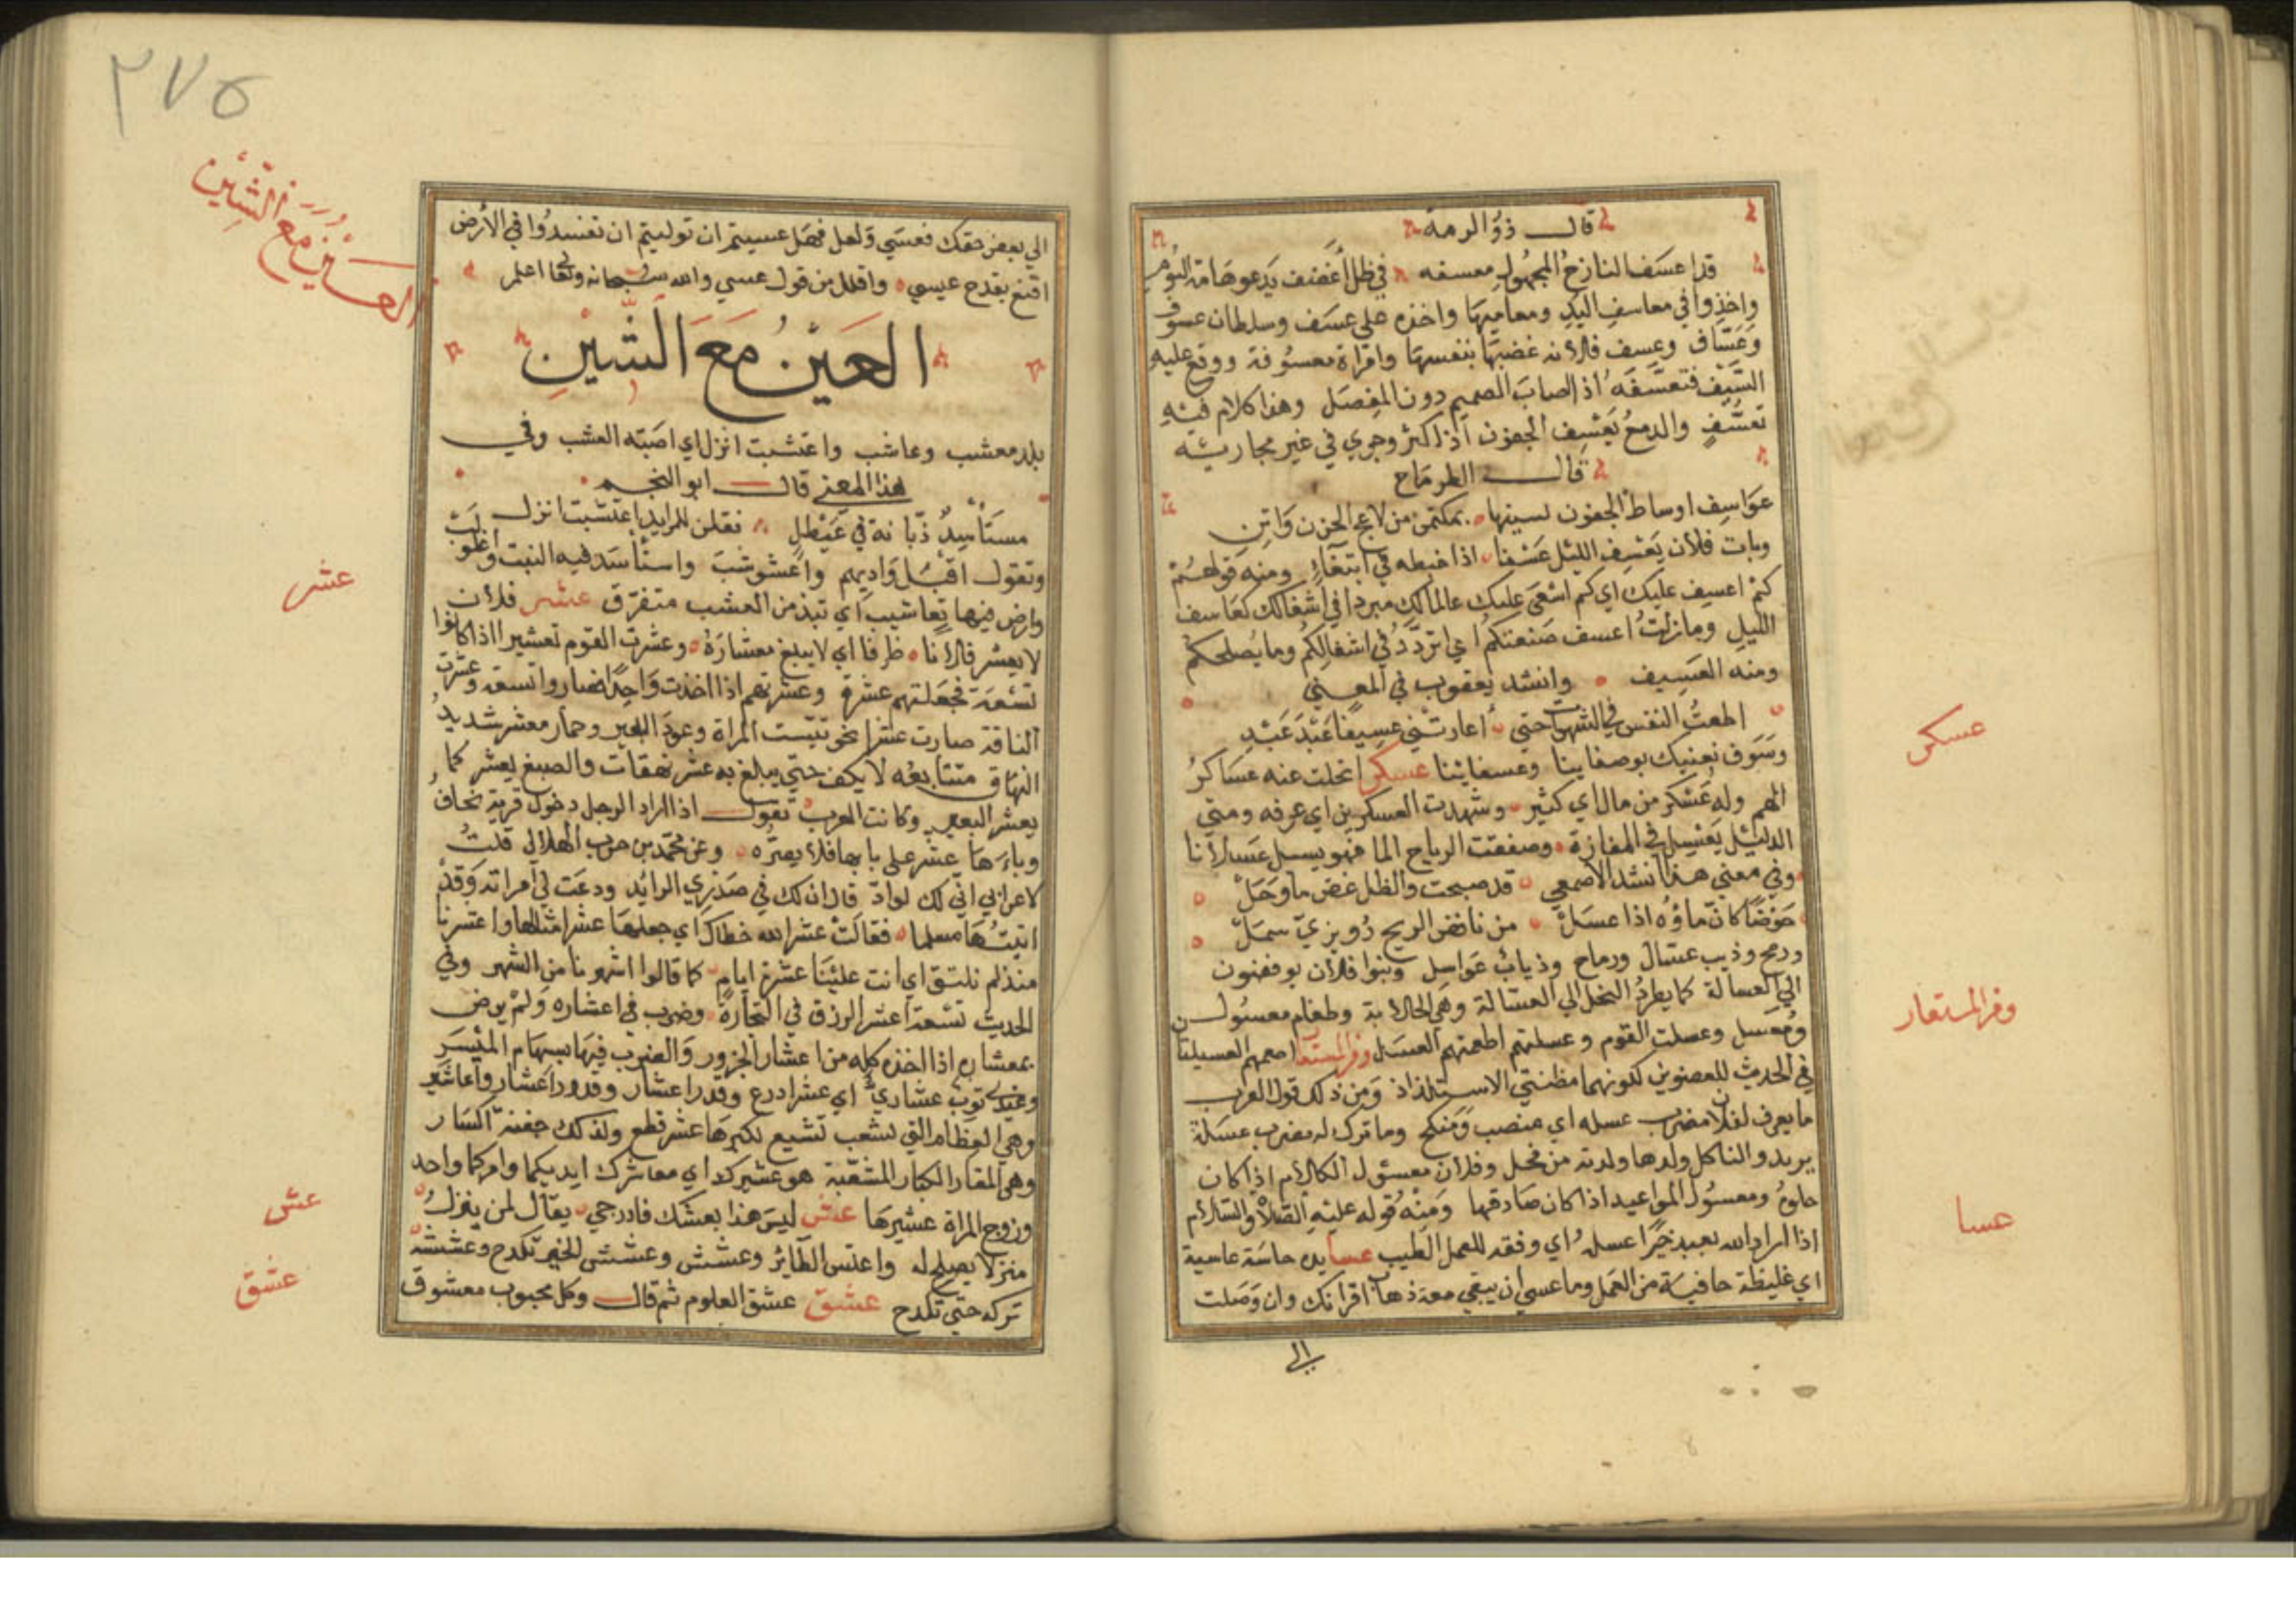 قال ذو الرمة
قد اعسف النازح المجهول معسفه في ظل أغضف يدعو هامه البوم
واخذوا في معاسف البيد ومعاميها واخذه على عسف وسلطان عسوف
وعساف وعسف فلانه غصبها بنفسها وامراة معسوفة ووقع عليه
السيف فتعسفه اذا صاب الصميم دون المفصل وهذا كلام فيه
تعسف والدمع يعسف الجفون اذا كثر وجري في غير مجاريه
قال الطرماح
عواسف اوساط الجفون يسفنها بمكتمن من لاعج الحزن واتن
وبات فلان يعسف الليل عسفا اذا خبطه في ابتغاء ومنه قولهم
كم اعسف عليك اي كم اسعى عليك عالما لك مترددا في اشغالك كعاسف
الليل وما زلت اعسف ضيعتكم اي اتردد في اشغالكم وما يصلحكم
ومنه العسيف وانشد يعقوب في المعني
اطعت النفس في الشهوات حتي اعادتني عسيفا عبد عبد
وسوف نعنيك بوصفاينا وعسفاينا عسكر انجلت عنه عساكر
الهم وله عسكر من مال اي كثير وشهدت العسكرين اي عرفه ومني
الدليل يعسل في المفازة وصفقت الرياح الما فهو يعسل عسلانا
وفي معني هذا انشد الاصمعي قد صبحت والظل غض ما وحل
حوضا كان ماؤه اذا عسل من نافض الريح رويزي سمل
ورمح وذيب عسال ورماح وذياب عواسل وبنوا فلان يوفضون
الي العسالة كما يطرد النحل الي العسالة وهي الخلابة وطعام معسول
ومعسل وعسلت القوم وعسلتهم اطعمتهم العسل ومن المستعار العسيلتان
في الحديث للعضوين لكونهما مظنتي الاستلذاذ ومن ذلك قول العرب
ما يعرف لفلان مضرب عسله اي منصب ومنكح وما ترك له مضرب عسلة
يريدوا الناكل ولدها ولدته من فحل وفلان معسول الكلام اذا كان
حلوه ومعسول المواعيد اذا كان صادقها ومنه قوله عليه الصلاة والسلام
اذا اراد الله بعبد خيرا عسله اي وفقه للعمل الطيب عسا يده جاسة عاسية
اي غليظة جافية من العمل وما عسي ان يبقي معه ذهاب اقرانك وان وصلت
الى
عسكر
ومن المستعار
عسا
٢٧٥
العين مع الشين
الي بعض حقك فعسي ولعل فهل عسيتم ان توليتم ان تفسدوا في الأرض
اقنع بقدح عيسى واقلل من قول عسي والله سبحانه وتعالى اعلم
العين مع الشين
بلد معشب وعاشب واعشبت انزل اي اصبته العشب وفي
هذا المعني قال ابو النجم
مستأسد ذبانه في غيطل يقلن للرايد اعشبت انزل
وتقول اقبل واديهم واعشوشب واستأسد فيه النبت واغلولب
وارض فيها تعاشيب اي نبذ من العشب متفرق عشر فلان
لا يعشر فلانا ظرفا اي لا يبلغ معشاره وعشرت القوم تعشيرا اذا كانوا
تسعة فجعلتهم عشرة وعشرتهم اذا اخذت واحدا فصاروا تسعة وعشرت
الناقة صارت عشرا نحو ثيبت المراة وعود البعير وحمار معشر شديد
النهاق متتابعه لا يكف حتي يبلغ به عشر نهقات والضبع يعشر كما
يعشر البعير وكانت العرب تقول اذا اراد الرجل دخول قرية نخاف
وباءها عشر على بابها فلا يضره وعن محمد بن حرب الهلالي قلت
لاعرابي اني لك لواد قال ان لك في صدري لرايد ودعت لي امراته وقد
اتيتها مسلما فقالت عشر الله خطاك اي جعلها عشر امثالها واعتشرنا
منذ لم نلتق اي اتت علينا عشرة ايام كما قالوا اشهرنا من الشهر وفي
الحديث تسعة اعشر الرزق في التجارة وضرب في اعشاره ولم يرض
بمعشاره اذا اخذه كله من اعشار الجزور والضرب فيها بسهام الميسر
وعندي ثوب عشاري اي عشر اذرع وقدر اعشار وقدور اعشار واعاشير
وهي العظام التي تشعب تشيع لكبرها عشر قطع ولذلك جفنة اكسار
وهي المقار الكبار المشعبة هو عشيرك اي معاشرك ايديكما وامركما واحد
وزوج المراة عشيرها عش ليس هذا بعشك فادرجي يقال لمن ينزل
منزلا لا يصلح له واعتش الطاير وعشش وعشش الخبز تكدح وعششه
تركه حتي تكدح عشق عشق العلوم ثم قال وكل محبوب معشوق
عشر
عش
عشق